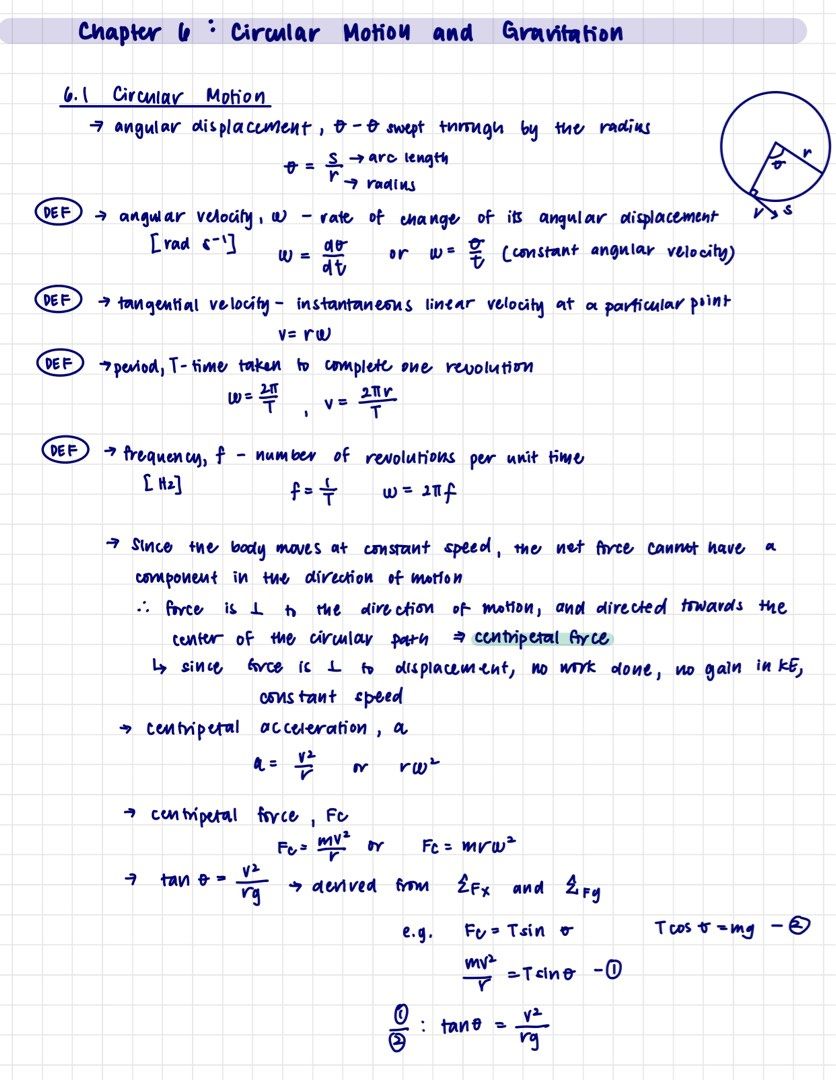 Chapter 6 : Circular Motion and Gravitation
6.1 Circular Motion
→ angular displacement, θ - θ swept through by the radius
θ = s/r → arc length
→ radius
r
θ
v
s
DEF → angular velocity, ω - rate of change of its angular displacement
[rad s⁻¹] ω = dθ/dt or ω = θ/t (constant angular velocity)
DEF → tangential velocity - instantaneous linear velocity at a particular point
v = rω
DEF → period, T - time taken to complete one revolution
ω = 2π/T , v = 2πr/T
DEF → frequency, f - number of revolutions per unit time
[Hz] f = 1/T ω = 2πf
→ Since the body moves at constant speed, the net force cannot have a
component in the direction of motion
∴ force is ⊥ to the direction of motion, and directed towards the
center of the circular path ⇒ centripetal force
↳ since force is ⊥ to displacement, no work done, no gain in KE,
constant speed
→ centripetal acceleration, a
a = v²/r or rω²
→ centripetal force, Fc
Fc = mv²/r or Fc = mrω²
→ tan θ = v²/rg → derived from ΣFx and ΣFy
e.g. Fc = T sin θ T cos θ = mg - ②
mv²/r = T sin θ - ①
①/② : tan θ = v²/rg